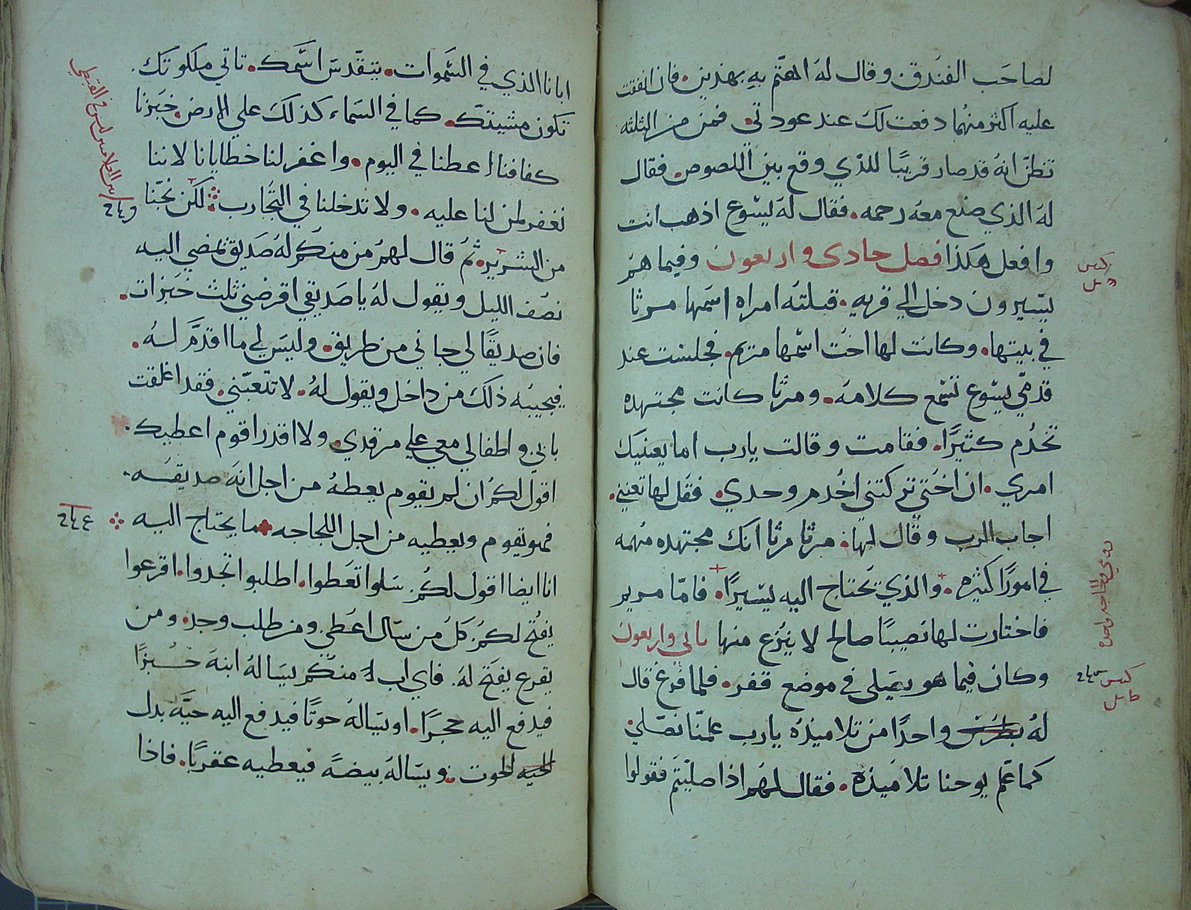 لصاحب الفندق وقال له اهتم به بهذين. فان انفقت
عليه اكثر منهما دفعت لك عند عودتي. فمن من الثلثه
تظن انه قد صار قريبًا للذي وقع بين اللصوص. فقال
له الذي صنع معه رحمه. فقال له يسوع اذهب انت
وافعل هكذا فصل حادى واربعون وفيما هم
يسيرون دخل الي قريه. قبلته امراه اسمها مرثا
في بيتها. وكانت لها اخت اسمها مريم. فجلست عند
قدمي يسوع تسمع كلامه. ومرثا كانت مجتهده
تخدم كثيرًا. فقامت وقالت يارب اما يعنيك
امري. ان اختي تركتني اخدم وحدي. فقل لها تعينني.
اجاب الرب وقال لها. مرثا مرثا انك مجتهده مهمه
في امورًا كثيره. والذي تحتاج اليه يسيرًا. فامّا مريم
فاختارت لها نصيبًا صالح لا ينزع منها ثانى واربعون
وكان فيما هو يصلي في موضع قفر. فلما فرغ قال
له بطرس واحدًا من تلاميذه يارب علمنا نصلي
كما علم يوحنا تلاميذه. فقال لهم اذا صليتم فقولوا
ابانا الذي في السموات. يتقدس اسمك. تاتي ملكوتك.
تكون مشيتك. كما في السماء كذلك علي الارض. خبزنا
كفافنا اعطنا في اليوم. واغفر لنا خطايانا لاننا
نغفر لمن لنا عليه. ولا تدخلنا في التجارب. لكن نجنا
من الشرير. ثم قال لهم من منكم له صديق يمضي اليه
نصف الليل ويقول له ياصديقي اقرضني ثلث خبزات.
فان صديقًا لي جاني من طريق. وليس لي ما اقدّم له.
فيجيبه ذلك من داخل ويقول له. لا تتعبني. فقد اغلقت
بابي. واطفالي معي علي مرقدي. ولا اقدر اقوم اعطيك.
اقول لكم ان لم يقوم يعطه من اجل انه صديقه.
فهو يقوم ويعطيه من اجل اللجاجه ما يحتاج اليه
انا ايضا اقول لكم. سلوا تعطوا. اطلبوا تجدوا. اقرعوا
يفتح لكم. كل من سال اعطي. ومن طلب وجد. ومن
يقرع يفتح له. فاي اب منكم يساله ابنه خبزًا
فيدفع اليه حجرًا. او يساله حوتًا فيدفع اليه حيّه بدل
الحيه الحوت. ويساله بيضه فيعطيه عقربًا. فاذا